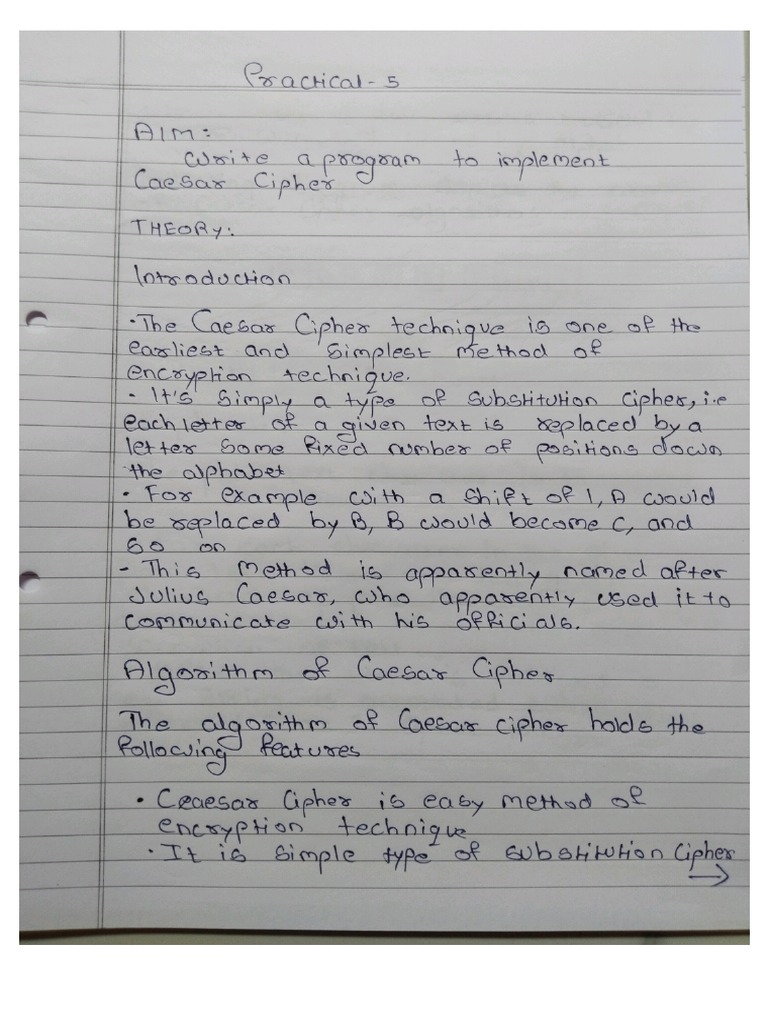 Practical - 5
AIM:
Write a program to implement
Caesar Cipher
THEORY:
Introduction
• The Caesar Cipher technique is one of the
earliest and simplest method of
encryption technique.
• It's simply a type of substitution cipher, i.e
each letter of a given text is replaced by a
letter some fixed number of positions down
the alphabet
• For example with a shift of 1, A would
be replaced by B, B would become C, and
so on
- This method is apparently named after
Julius Caesar, who apparently used it to
communicate with his officials.
Algorithm of Caesar Cipher
The algorithm of Caesar cipher holds the
following features
• Ceaesar Cipher is easy method of
encryption technique
• It is simple type of substitution Cipher
→